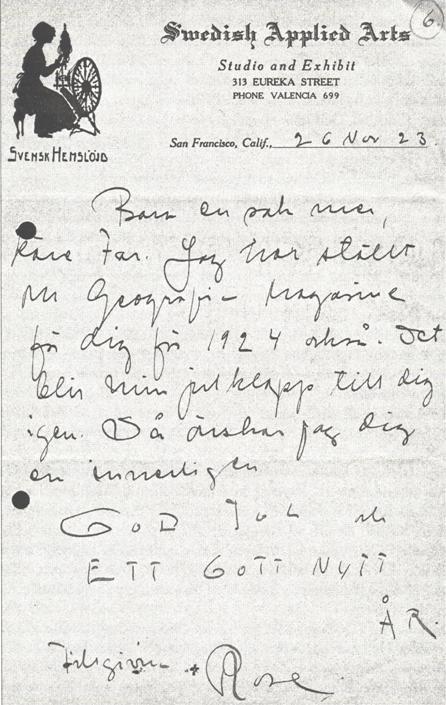 6
Swedish Applied Arts
Studio and Exhibit
313 EUREKA STREET
PHONE VALENCIA 699
San Francisco, Calif., 26 Nov 23.
SVENSK HEMSLÖJD
Bara en sak mer,
käre Far. Jag har ställt
om Geografic Magasine
för dig för 1924 också. Det
blir min julklapp till dig
igen. Så önskar jag dig
en innerligen
GOD JUL och
ETT GOTT NYTT
ÅR.
Tillgivne
Rose